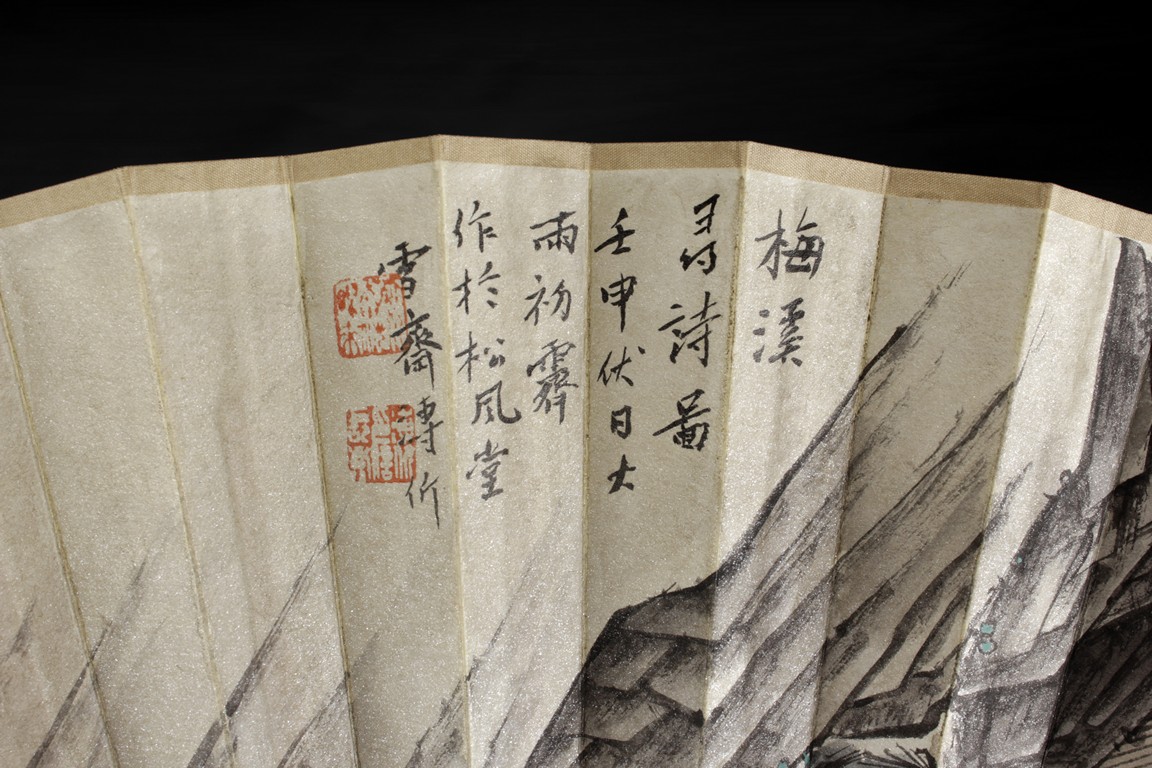 梅溪
尋詩圖
壬申伏日大
雨初霽
作於松風堂
雪齋溥伒